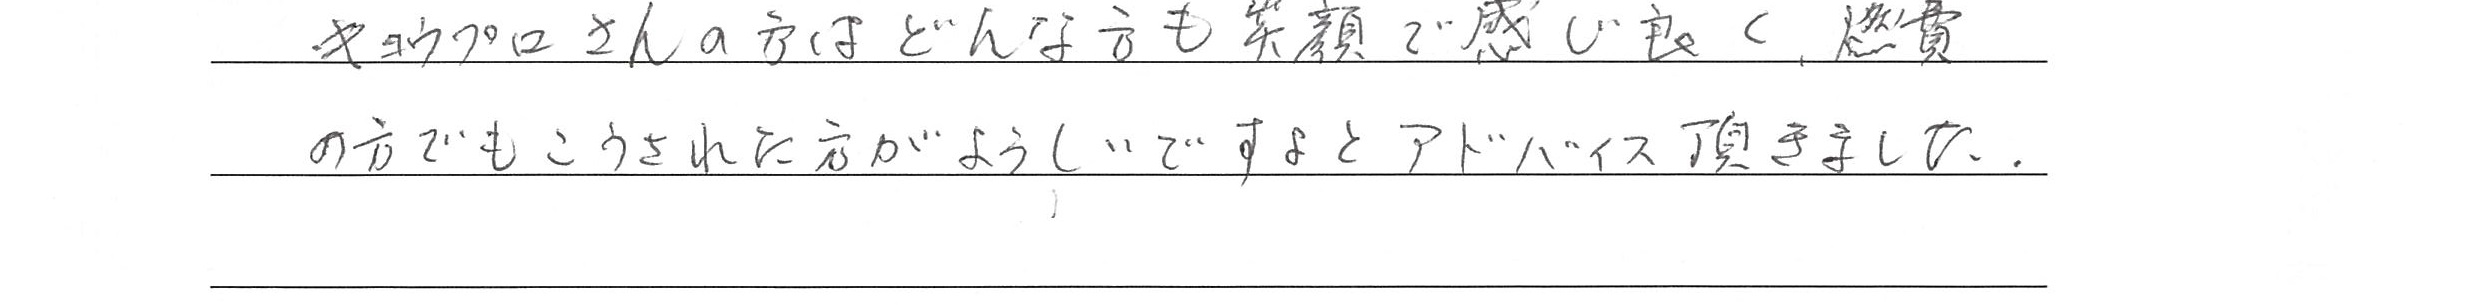 キョウプロさんの方はどんな方も笑顔で感じ良く、燃費
の方でもこうされた方がようしいですよとアドバイス頂きました.